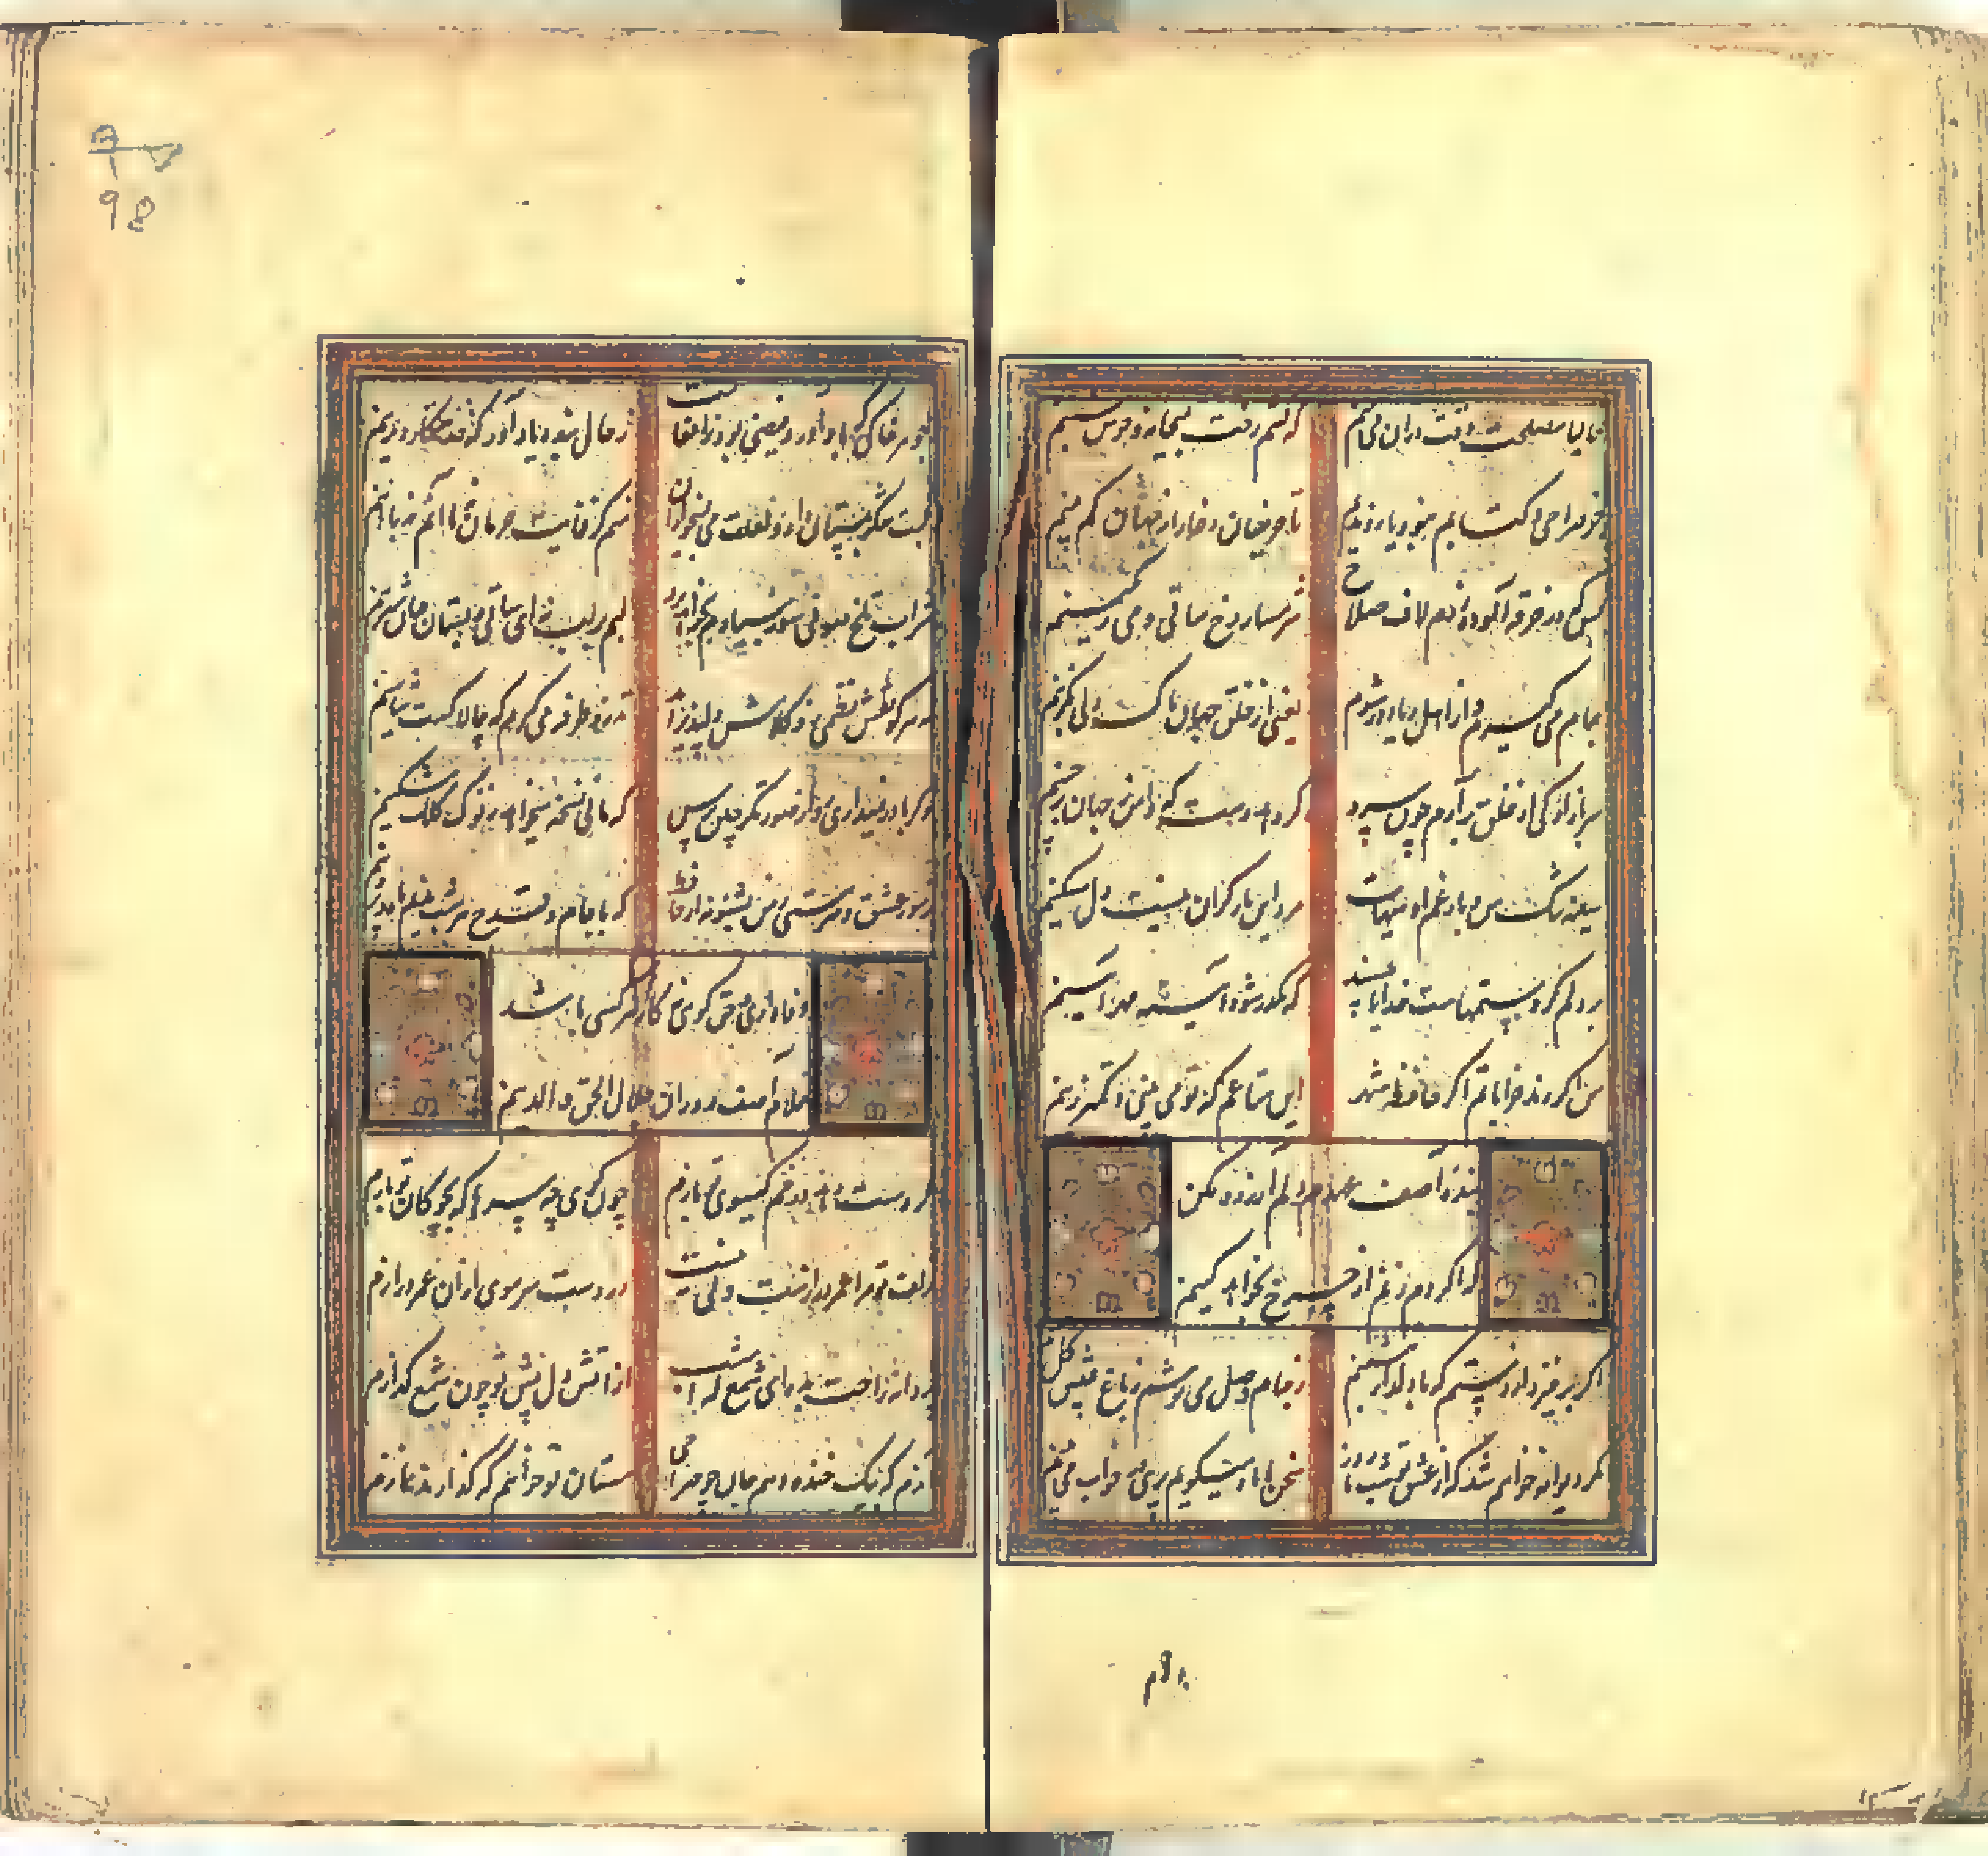 حالیا مصلحت وقت دران می بینم
که کشم رخت بمیخانه و خوش بنشینم
جز صراحی و کتابم نبود یار و ندیم
تا حریفان دغا را ز جهان کم بینم
بس که در خرقه آلوده زدم لاف صلاح
شرمسار رخ ساقی و می رنگینم
جام می گیرم و از اهل ریا دور شوم
یعنی از خلق جهان پاک دلی بگزینم
سر بازادگی از خلق برآرم چون سرو
گر دهد دست که دامن ز جهان درچینم
سینه تنگ من و بار غم او هیهات
مرد این بار گران نیست دل مسکینم
بر دلم گرد ستمهاست خدایا مپسند
که مکدر شود آیینه مهر آیینم
من اگر رند خراباتم اگر حافظ شهر
این متاعم که تو می بینی و کمتر زینم
بنده آصف عهدم دلم آزرده مکن
که اگر دم زنم از چرخ بخواهد کینم
گرم
اگر برخیزد از دستم که با دلدار بنشینم
ز جام وصل می نوشم ز باغ عیش گل چینم
مگر دیوانه خواهم شد که از عشق تو شب تا روز
سخن با ماه میگویم پری در خواب می بینم
لبت شکر بمستان داد و چشمت می بمیخواران
منم کز غایت حرمان نه با آنم نه با اینم
شراب تلخ صوفی سوز بنیادم بخواهد برد
لبم بر لب نه ای ساقی و بستان جان شیرینم
نه هر کو نقش نظمی زد کلامش دلپذیر آمد
تذرو طرفه می گیرم که چالاکست شاهینم
وگر باور نمیداری رو از صورتگر چین پرس
که مانی نسخه میخواهد ز نوک کلک مشکینم
رموز عشق و سرمستی ز من بشنو نه از حافظ
که با جام و قدح هر شب ندیم ماه و پروینم
وفاداری و حق گویی نه کار هر کسی باشد
غلام آصف دوران جلال الحق والدینم
گر دست دهد در خم گیسوی تو بازم
چون گوی چه سرها که بچوگان تو بازم
زلف تو مرا عمر درازست ولی نیست
در دست سر مویی از آن عمر درازم
پروانه راحت بده ای شمع که امشب
از آتش دل پیش تو چون شمع گدازم
آن دم که بیک خنده دهم جان چو صراحی
مستان تو خواهم که گذارند نمازم